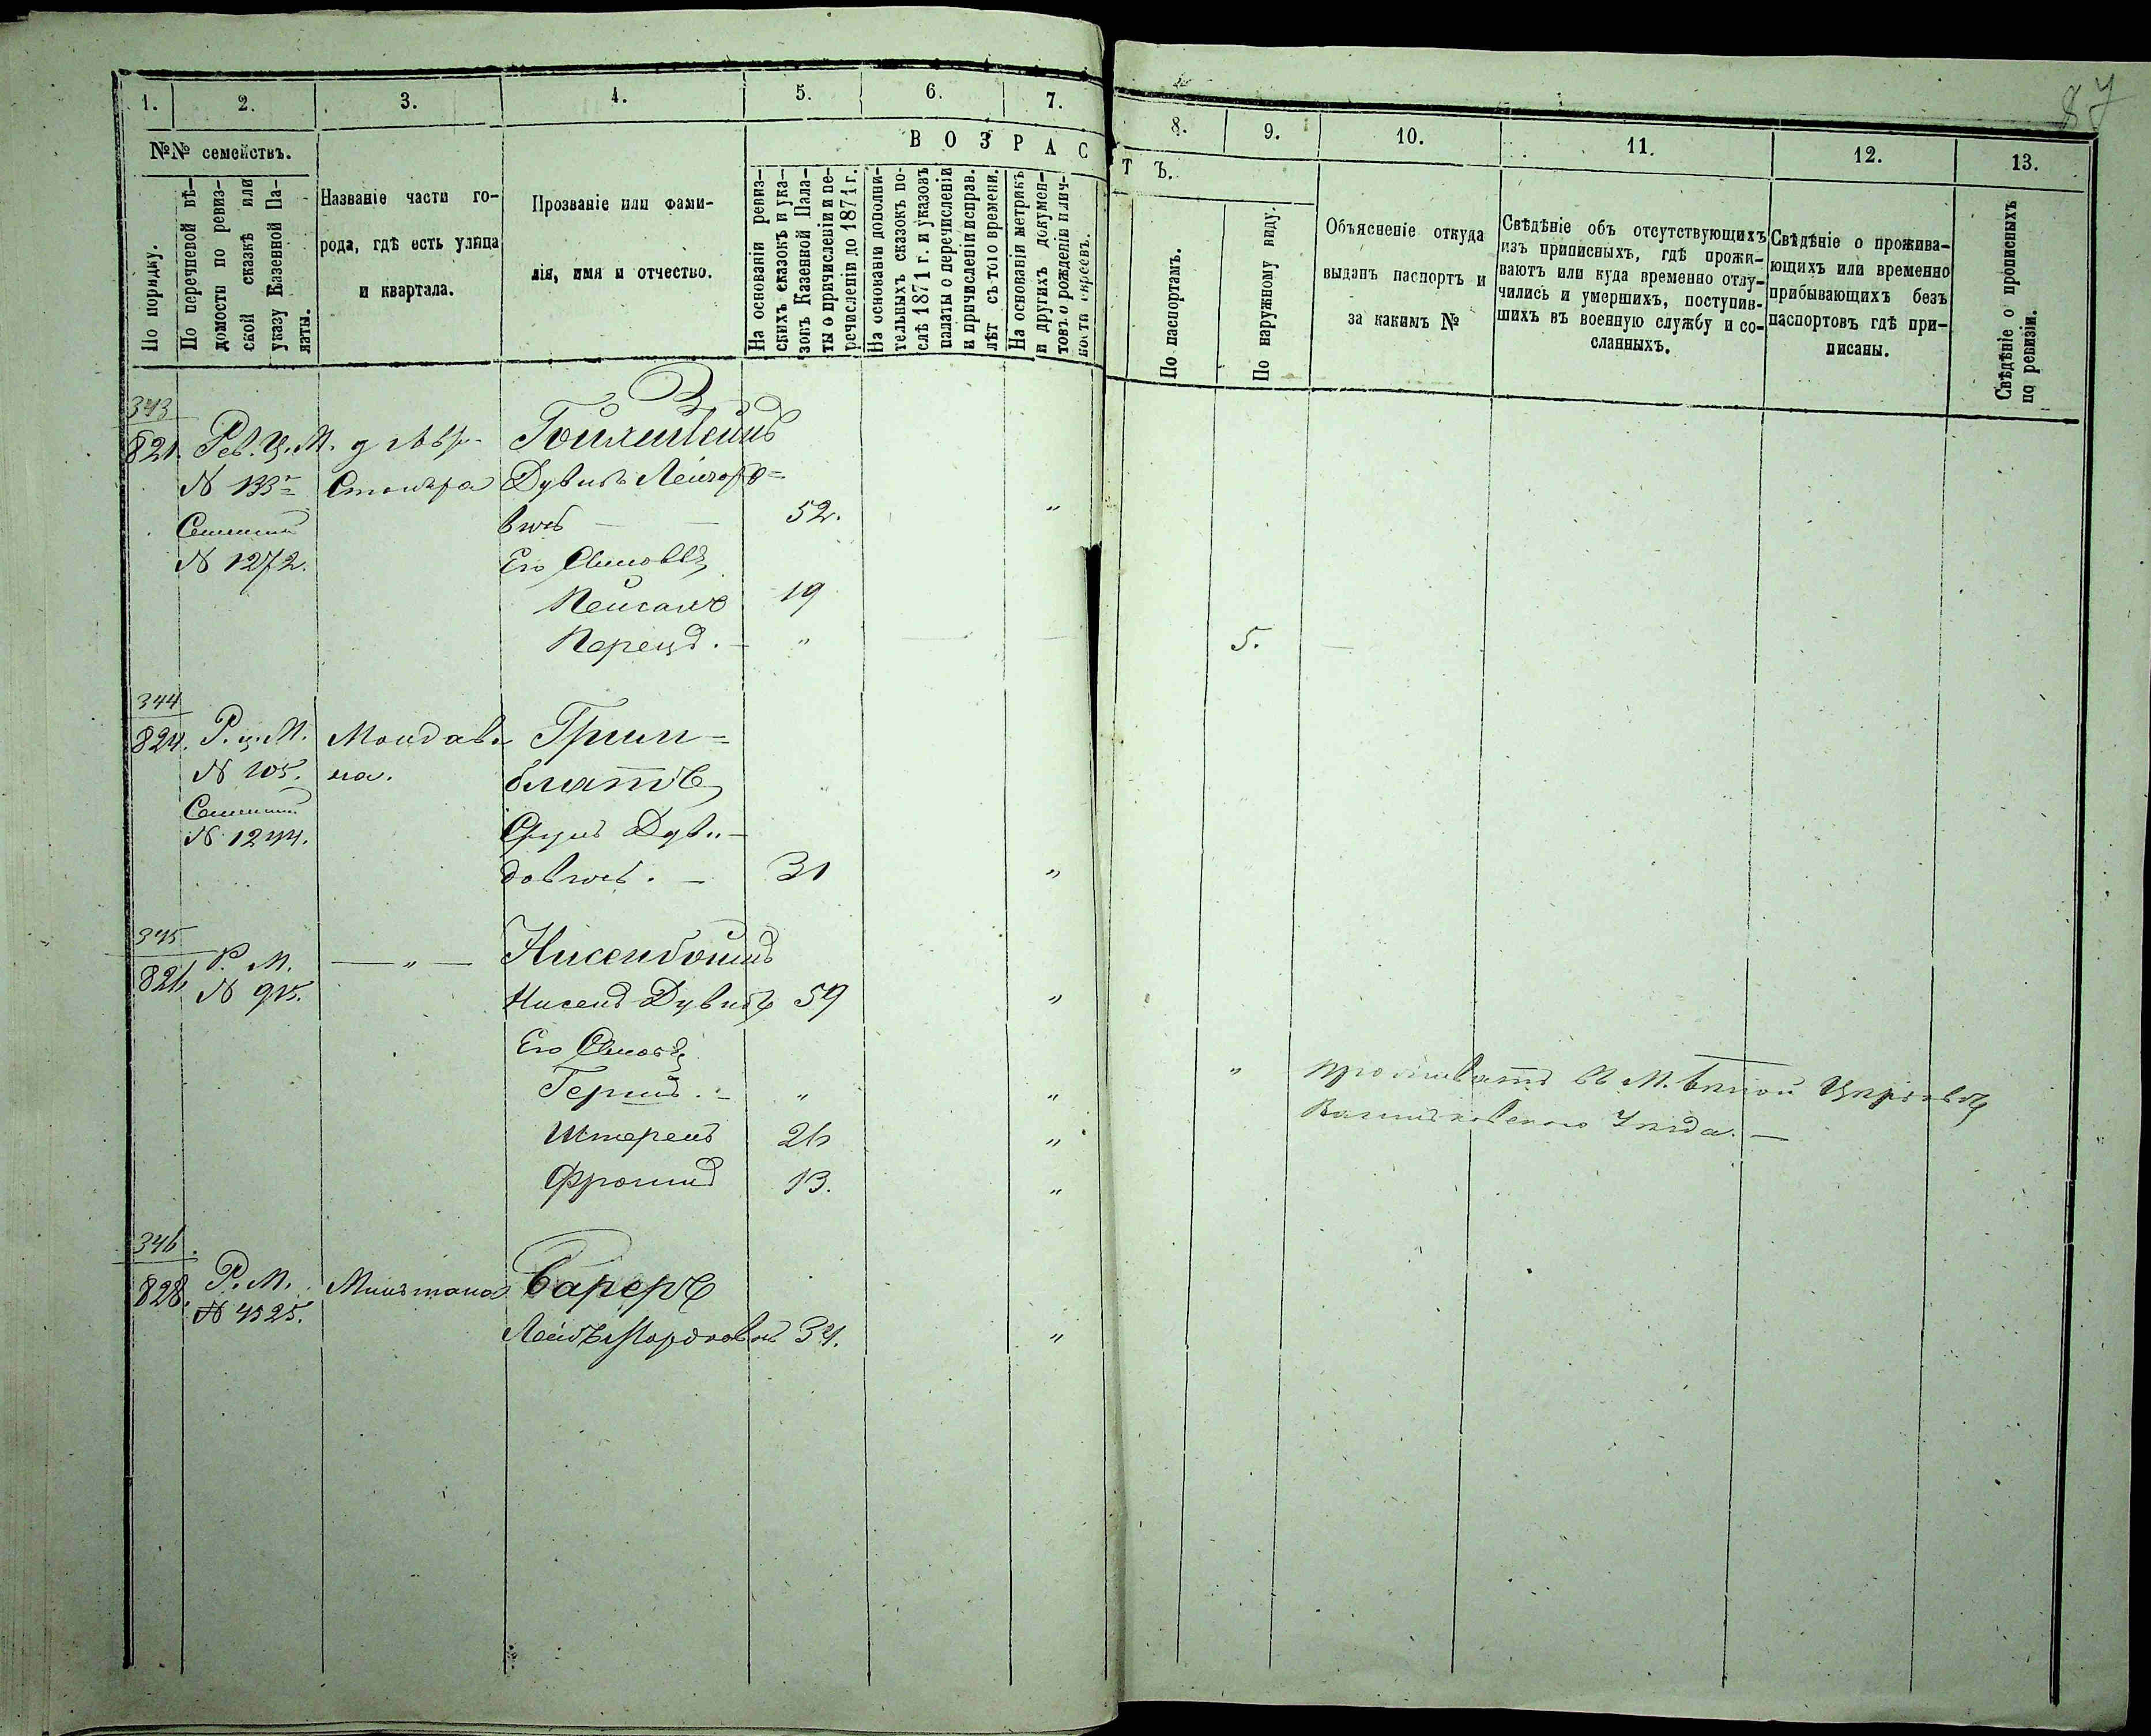 87
1.
2.
3.
4.
5.
6.
7.
8.
9.
10.
11.
12.
13.
№№ семействъ.
По порядку.
По перечневой вѣ-
домости по ревиз-
ской сказкѣ или
указу Казенной Па-
латы.
Названіе части го-
рода, гдѣ есть улица
и квартала.
Прозваніе или фами-
лія, имя и отчество.
ВОЗРАС
ТЪ.
На основаніи ревиз-
скихъ сказокъ и ука-
зовъ Казенной Пала-
ты о причисленіи и пе-
речисленіи до 1871 г.
На основаніи дополни-
тельныхъ сказокъ по-
слѣ 1871 г. и указовъ
палаты о перечисленіи
и причисленіи исправ.
лѣт съ того времени.
На основаніи метрикъ
и другихъ докумен-
товъ о рожденіи и лич-
ности евреевъ.
По паспортамъ.
По наружному виду.
Объясненіе откуда
выданъ паспортъ и
за какимъ №
Свѣдѣніе объ отсутствующихъ
изъ приписныхъ, гдѣ прожи-
ваютъ или куда временно отлу-
чились и умершихъ, поступив-
шихъ въ военную службу и со-
сланныхъ.
Свѣдѣніе о прожива-
ющихъ или временно
прибывающихъ безъ
паспортовъ гдѣ при-
писаны.
Свѣдѣніе о прописныхъ
по ревизіи.
343
821. Рев. Ц. М.
N 133
Столяра
Дувидъ
вичъ 52. "
N 1272.
Его Сыновья
Пейсахъ 19
Перецъ. - " 5.
344
824. Р. ц. М. Грин=
N 105. на. блатъ
N 1244. Сруль Дуви-
довичъ. - 31 "
345
826 Р. М. — " — Нисенбоимъ
N 915. Нисенъ Дувидъ 59 "
Его Сыновья
Гершъ. - " " " проживаетъ въ М. Бѣлой Церкви
Васильковского Уѣзда. —
Штеренъ 26 "
Фроимъ 13. "
346.
828. Р. М. Бареръ
N 4525.
Лейбъ Мордковичъ 34. "